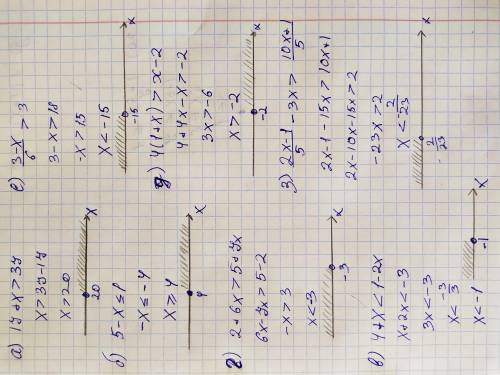 а) 17+x>37
x>37-17
x>20
20 x
б) 5-x≤1
-x≤-4
x≥4
4 x
г) 2+6x>5+7x
6x-7x>5-2
-x>3
x<-3
-3 x
в) 4+x<1-2x
x+2x<-3
3x<-3
x<-3/3
x<-1
-1 x
е) 3-x/6 > 3
3-x>18
-x>15
x<-15
-15 x
д) 4(1+x)>x-2
4+4x-x>-2
3x>-6
x>-2
-2 x
з) 2x-1/5 -3x> 10x+1/5
2x-1-15x>10x+1
2x-10x-15x>2
-23x>2
x< 2/-23
-2/23 x